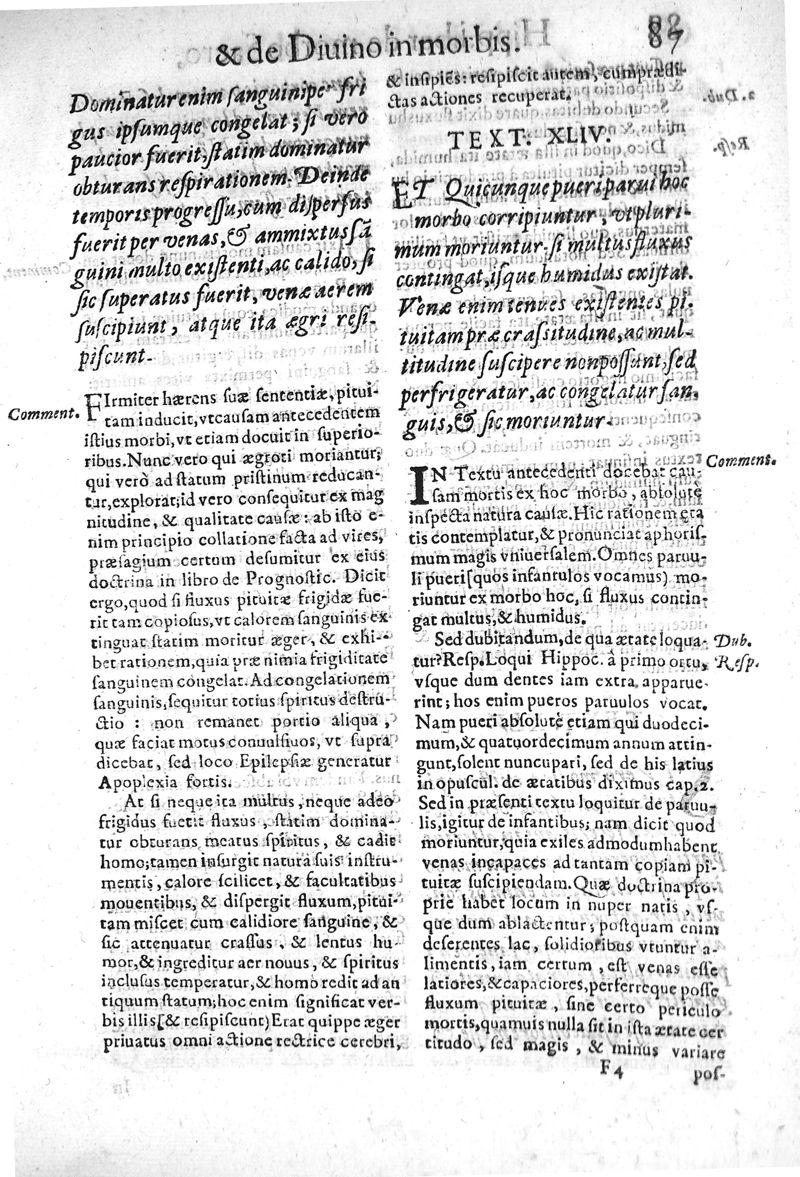 & de Diuino in morbis.
87
Dominatur enim ſanguini per fri
gus ipſumque congelat; ſi vero
paucior fuerit, ſtatim dominatur
obturans reſpirationem. Deinde
temporis progreſſu, cum diſperſus
fuerit per venas, & ammixtus ſā
guini multo exiſtenti, ac calido, ſi
ſic ſuperatus fuerit, venæ aerem
ſuſcipiunt, atque ita ægri reſi-
piſcunt.
Comment.
FIrmiter hærens ſuæ ſententiæ, pitui-
tam inducit, vt cauſam antecedentem
iſtius morbi, vt etiam docuit in ſuperio-
ribus. Nunc vero qui ægroti moriantur;
qui verò ad ſtatum priſtinum reducan-
tur, explorat; id vero conſequitur ex mag
nitudine, & qualitate cauſæ: ab iſto e-
nim principio collatione facta ad vires,
præſagium certum deſumitur ex eius
doctrina in libro de Prognoſtic. Dicit
ergo, quod ſi fluxus pituitæ frigidæ fue-
rit tam copioſus, vt calorem ſanguinis ex
tinguat ſtatim moritur æger, & exhi-
bet rationem, quia præ nimia frigiditate
ſanguinem congelat. Ad congelationem
ſanguinis, ſequitur totius ſpiritus deſtru-
ctio: non remanet portio aliqua,
quæ faciat motus conuulſiuos, vt ſupra
dicebat, ſed loco Epilepſiæ generatur
Apoplexia fortis.
At ſi neque ita multus, neque adeo
frigidus fuetit fluxus, ſtatim domina-
tur obturans meatus ſpiritus, & cadit
homo; tamen inſurgit natura ſuis inſtru-
mentis, calore ſcilicet, & facultatibus
mouentibus, & diſpergit fluxum, pitui-
tam miſcet cum calidiore ſanguine, &
ſic attenuatur craſſus, & lentus hu-
mor, & ingreditur aer nouus, & ſpiritus
incluſus temperatur, & homo redit ad an
tiquum ſtatum; hoc enim ſignificat ver-
bis illis [& reſipiſcunt) Erat quippe æger
priuatus omni actione rectrice cerebri,
& inſipiēs: reſipiſcit autem, cum prædi-
ctas actiones recuperat.
TEXT. XLIV.
ET Quicunque pueri parui hoc
morbo corripiuntur, vt pluri-
mum moriuntur ſi multus fluxus
contingat, iſque humidus exiſtat.
Venæ enim tenues exiſtentes pi-
tuitam præ craſſitudine, ac mul-
titudine ſuſcipere non poſſunt, ſed
perfrigeratur, ac congelatur ſan-
guis, & ſic moriuntur.
Comment.
IN Textu antecedenti docebat cau-
ſam mortis ex hoc morbo, abſolutè
inſpecta natura cauſæ. Hic rationem ęta
tis contemplatur, & pronunciat aphoriſ-
mum magis vniuerſalem. Omnes paruu-
li pueri [quos infantulos vocamus) mo-
riuntur ex morbo hoc, ſi fluxus contin-
gat multus, & humidus.
Sed dubitandum, de qua ætate loqua-
Dub.
tur? Reſp. Loqui Hippoc. à primo ortu,
Reſp.
vſque dum dentes iam extra apparue-
rint; hos enim pueros paruulos vocat.
Nam pueri abſolutè etiam qui duodeci-
mum, & quatuordecimum annum attin-
gunt, ſolent nuncupari, ſed de his latius
in opuſcul. de ætatibus diximus cap. 2.
Sed in præſenti textu loquitur de paruu-
lis, igitur de infantibus; nam dicit quod
moriuntur, quia exiles admodum habent
venas incapaces ad tantam copiam pi-
tuitæ ſuſcipiendam. Quæ doctrina pro-
prie habet locum in nuper natis, vſ-
que dum ablactentur; poſtquam enim
deſerentes lac, ſolidioribus vtuntur a-
limentis, iam certum, eſt venas eſſe
latiores, & capaciores, perferreque poſſe
fluxum pituitæ, ſine certo periculo
mortis, quamuis nulla ſit in iſta ætate cer
titudo, ſed magis, & minus variare
F 4
poſ-